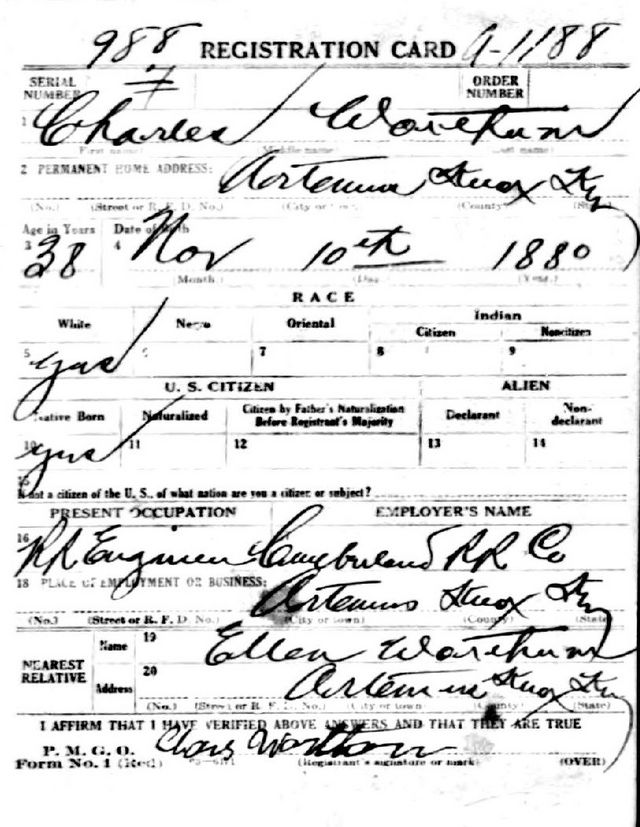 988 REGISTRATION CARD A-1188
SERIAL NUMBER 7 ORDER NUMBER
1 Charles Wortham
First name) Middle name) Last name)
2 PERMANENT HOME ADDRESS: Artemus Knox Ky
(No.) (Street or R. F. D. No.) (City or town) (County) (State)
Age in Years Date of Birth
3 38 4 Nov 10th 1880
Month) (Day) (Year.)
RACE
White Negro Oriental Indian
Citizen Noncitizen
5 yes 6 7 8 9
U. S. CITIZEN ALIEN
Native Born Naturalized Citizen by Father's Naturalization Before Registrant's Majority Declarant Non-declarant
10 yes 11 12 13 14
15
If not a citizen of the U. S., of what nation are you a citizen or subject?
PRESENT OCCUPATION EMPLOYER'S NAME
16 RR Engineer Cumberland RR Co
18 PLACE OF EMPLOYMENT OR BUSINESS:
Artemus Knox Ky
(No.) (Street or R. F. D. No.) (City or town) (County) (State)
NEAREST RELATIVE Name 19 Ellen Wortham
Address 20 Artemus Knox Ky
(No.) (Street or R. F. D. No.) (City or town (County) (State)
I AFFIRM THAT I HAVE VERIFIED ABOVE ANSWERS AND THAT THEY ARE TRUE
P. M. G. O.
Form No. 1 (Red) Chas Wortham
(Registrant's signature or mark) (OVER)